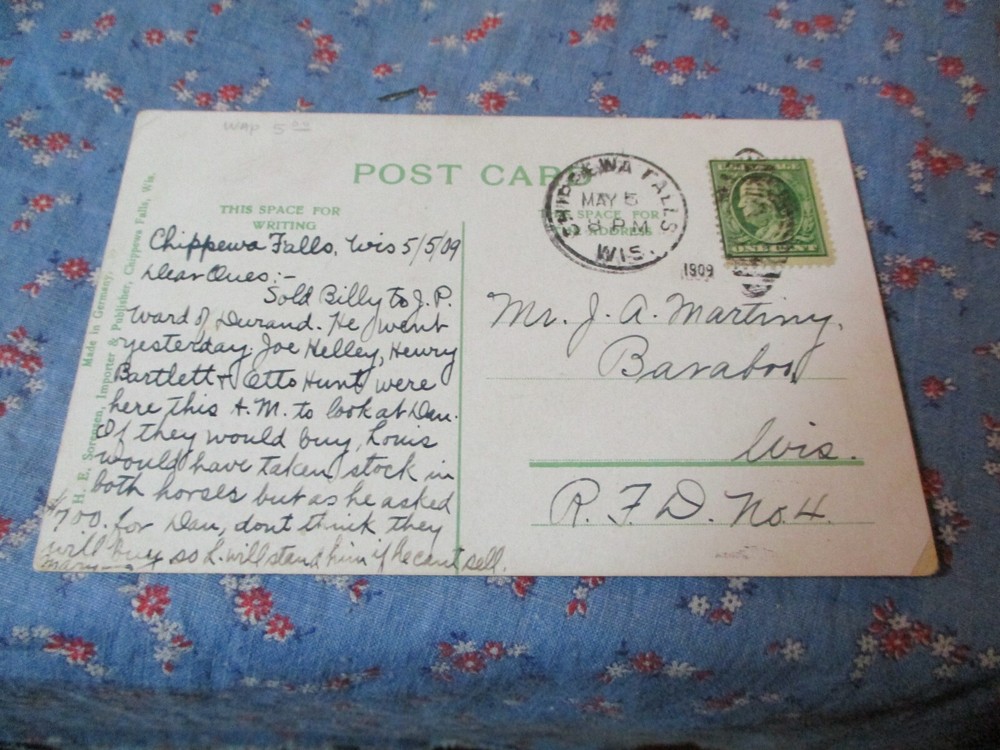 WAP 5.00
POST CARD
THIS SPACE FOR
WRITING
SPACE FOR
ADDRESS
CHIPPEWA FALLS
MAY 5
8 P.M.
WIS.
1909
ONE CENT
Made in Germany.
H. E. Sorensen, Importer & Publisher, Chippewa Falls, Wis.
Chippewa Falls, Wis 5/5/09
Dear Ones:-
Sold Billy to J. P.
Ward of Durand. He went
yesterday. Joe Kelley, Henry
Bartlett + Otto Hunt were
here this A.M. to look at Dan.
If they would buy, Louis
would have taken stock in
both horses but as he asked
$700. for Dan, dont think they
will buy so L. will stand him if he cant sell.
Mary
Mr. J. A. Martiny,
Baraboo
Wis.
R. F. D. No. 4.